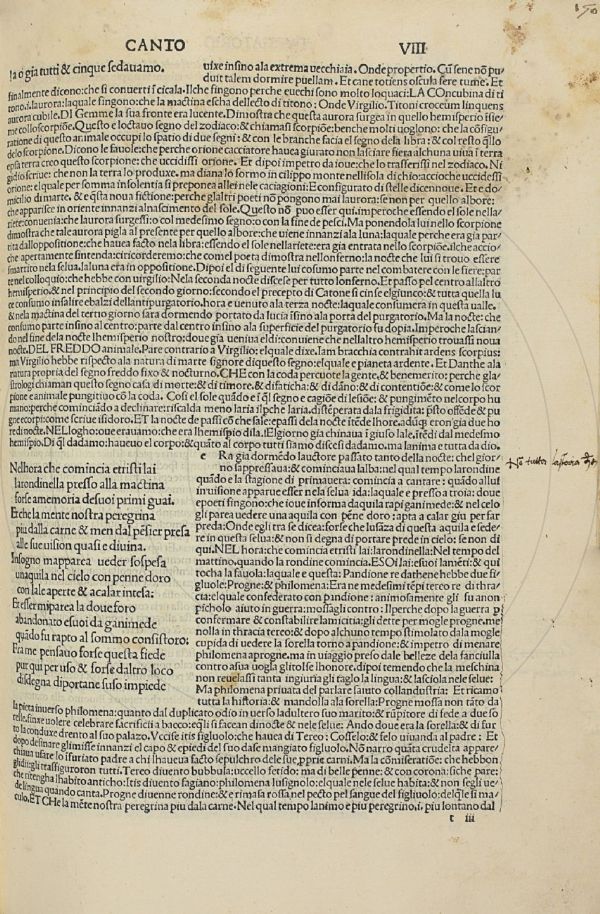 CANTO VIII
la ogia tutti & cinque sedauamo.
uixe insino ala extrema uecchiaia. Onde propertio. Cū sene nō pu/
duit talem dormire puellam. Et cane totiens oscula sere tume. Et
finalmente dicono: che si conuerti ī cicala. Ilche fingono perche euechi sono molto loquaci: LA COncubina di ti
tono. i. laurora: laquale fingono: che la mactina escha dellecto di titono: Onde Virgilio. Titoni croceum linquens
aurora cubile. DI Gemme la sua fronte era lucente. Dimostra che questa aurora surgea in quello hemisperio isie/
me collo scorpiōe. Questo e loctauo segno del zodiaco: & chiamasi scorpiōe: benche molti uogliono: che la cōfigu/
ratione di questo animale occupi lo spatio di due segni: & con le branche facia el segno dela libra: & col resto q̄llo
delo scorpione. Dicono le fauole: che perche orione cacciatore hauea giurato non lasciare fiera alchuna uiua ī terra
epsa terra creo questo scorpione: che uccidissi orione. Et dipoi impetro da ioue: che lo trasferissi nel zodiaco. Ni
gidio scriue: che non la terra lo produxe. ma diana lo formo in cilippo monte nellisola di chio: accioche uccidessi
orione: el quale per somma insolentia si preponea allei nele caciagioni: Econfigurato di stelle dicennoue. Et e do/
micilio di marte. & e q̄sta noua fictione: perche glaltri poeti nō pongono mai laurora: se non per quello albore:
che apparisce in oriente innanzi al nascimento del sole. Questo nō puo esser qui. imperoche essendo el sole nella/
riete: conuenia: che laurora surgessi: o col medesimo segno: o con la fine de pesci. Ma ponendola lui nello scorpione
dimostra che tale aurora pigla al presente per quello albore: che uiene innanzi ala luna: laquale perche era gia par/
tita dalloppositione: che hauea facto nela libra: essendo el sole nellariete: era gia entrata nello scorpiōe. Ilche accio/
che apertamente sintenda: ci ricorderemo: che comel poeta dimostra nellonferno: la nocte che lui si trouo essere
smarrito nela selua. la luna era in oppositione. Dipoi el di seguente lui cōsumo parte nel combatere con le fiere: par
te nel colloquio: che hebbe con uirgilio: Nela seconda nocte discese per tutto lonferno. Et passo pel centro allastro
hemisperio. & nel principio del secondo giorno: secondo el precepto di Catone si cinse el giunco: & tutta quella lu
ce consumo insalire ebalzi dellantipurgatorio. hora e uenuto ala terza nocte: laquale consumera in questa ualle.
& nela mactina del tertio giorno sara dormendo portato da lucia ifino ala porta del purgatorio. Ma la nocte: che
consumo parte insino al centro: parte dal centro insino ala superficie del purgatorio fu dopia. Imperoche lascian/
do nel fine dela nocte lhemisperio nostro: doue gia ueniua el di: conuiene che nellaltro hemisperio trouassi noua
nocte: DEL FREDDO animale. Pare contrario a Virgilio: elquale dixe. Iam brachia contrahit ardens scorpius:
ma Virgilio hebbe rispecto ala natura di marte signore di questo segno: elquale e pianeta ardente. Et Danthe ala
natura propria del segno freddo fixo & nocturno. CHE con la coda percuote la gente. & benemerito: perche gla/
strologi chiaman questo segno casa di morte: & di timore. & difaticha: & di dāno: & di contentiōe: & come lo scor
pione e animale pungitiuo cō la coda. Cosi el sole quādo e ī q̄l segno e cagiōe di lesiōe: & pungimēto nel corpo hu
mano: perche cominciādo a declinare: riscalda meno la aria: ilpche laria. distēperata dala frigidita: p̄sto offēde & pu
gne e corpi: come scriue isidoro. ET la nocte de passi cō che sale: epassi dela nocte itēde lhore. adūq̄ eron gia due ho
re di nocte. NEL logho: oue erauamo: che era lhemisperio di la. el giorno gia chinaua ī giuso lale. itēdi dal medesimo
hemispio. Di q̄l dadamo: haueuo el corpo: & quāto al corpo tutti siamo discesi da damo. ma lanima e tutta da dio.
Nelhora che comincia e tristi lai
larondinella presso alla mactina
forse amemoria desuoi primi guai.
Et che la mente nostra peregrina
piu dalla carne & men dal pēsier presa
alle sue uision quasi e diuina.
In sogno mapparea ueder sospesa
unaquila nel cielo con penne doro
con lale aperte & acalar intesa:
Et esser mi parea la doue foro
abandonati esuoi da ganimede
quādo fu rapto al sommo consistoro:
Fra me pensauo forse questa fiede
pur qui per uso & forse daltro loco
disdegna di portane suso in piede
e Ra gia dormēdo lauctore passato tanto della nocte: che lgior/
no sappressaua: & cominciaua lalba: nel qual tempo la rondine
quādo e la stagione di primauera: comincia a cantare: quādo alui ī
in uisione apparue esser nela selua ida: laquale e presso a troia: doue
epoeti fingono: che ioue in forma daquila rapi ganimede: & nel celo
gli parea uedere una aquila con pēne doro: apta a calar giu per far
preda: Onde egli tra se dicea: forse che lusāza di questa aquila e fede/
re in questa selua: & non si degna di portare prede in cielo: se non di
qui. NEL hora: che comincia e tristi lai: la rondinella: Nel tempo del
mattino. quando la rondine comincia. E SOI lai: e suoi lamēti: & qui
tocha la fauola: laquale e questa: Pandione re dathene hebbe due fi
gluole: Progne: & philomena: Era ne medesimi tēpi tereo re di thra/
cia: el quale confederato con pandione: animosamente gli fu a non
picholo aiuto in guerra: mossagli contro: Il perche dopo la guerra p
confermare & constabilire lamicitia: gli dette per mogle progne. me
nolla in thracia tereo: & dopo alchuno tempo stimolato dala mogle
cupida di uedere la sorella torno a pandione: & impetro di menare
philomena a progne. ma in uiaggio preso dale belleze dela fanciulla
contro asua uogla gli tolse lhonore. dipoi temendo che la meschina
non reuelassi tanta ingiuria gli taglo la lingua: & lasciola nele selue:
Ma philomena priuata del parlare saiuto collandustria: Et ricamo
tutta la historia: & mandolla ala sorella: Progne mossa non tāto da
la pieta inuerso philomena: quanto dal duplicato odio in uerso ladultero suo marito: & rapitore di fede a duo so
relle. finxe uolere celebrare sacrificii a bacco: eq̄li si facean di nocte & nele selue: Ando doue era la sorella: & di fur
to la conduxe drento al suo palazo. Vccise itis figluolo: che hauea di Tereo: Cosselo: & felo uiuanda al padre: Et
dopo desinare gli misse innanzi el capo & epiedi del suo da se mangiato figluolo. Nō narro quāta crudelta appare/
chiaua usare lo ifuriato padre a chi lhaueua facto sepulchro dele sue, pprie carni. Ma la cōmiseratiōe: che hebbon
gli dii: gli trasfiguroron tutti. Tereo diuento bubbula: uccello fetido: ma di belle penne: & con corona: siche pare:
che ritengha lhabito anticho: Itis diuento fagiano: philomena lusignolo: elquale nele selue habita: & non segli ue/
de lingua quando canta. Progne diuenne rondine: & e rimasa rossa nel pecto pel sangue del figliuolo: delq̄le si ma/
culo. ET CHe la mēte nostra peregrina piu dala carne: Nel qual tempo lanimo e piu peregrino. i. piu lontano dal
t iii